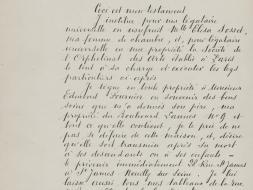 Ceci est mon testament
J'institue pour ma légataire
universelle en usufruit Mlle Elisa Gosset,
ma femme de chambre, et, pour légataire
universelle en nue propriété la Société de
l'Orphelinat des Arts établie à Paris
le tout à sa charge d'exécuter les legs
particuliers ci-après
Je lègue en toute propriété à Monsieur
Edmond Fournier en souvenir des bons
soins que m'a donnés son père, ma
propriété du Boulevard Lannes No 9 et
tout ce qu'elle contient, je le prie de ne
pas se défaire de cette maison, et, désire
qu'elle soit transmise après sa mort
à ses descendants ou à ses enfants
le prévenir immédiatement Rue St James
à St James Neuilly sur Seine. Je lui
laisse aussi tous mes tableaux de la Rue